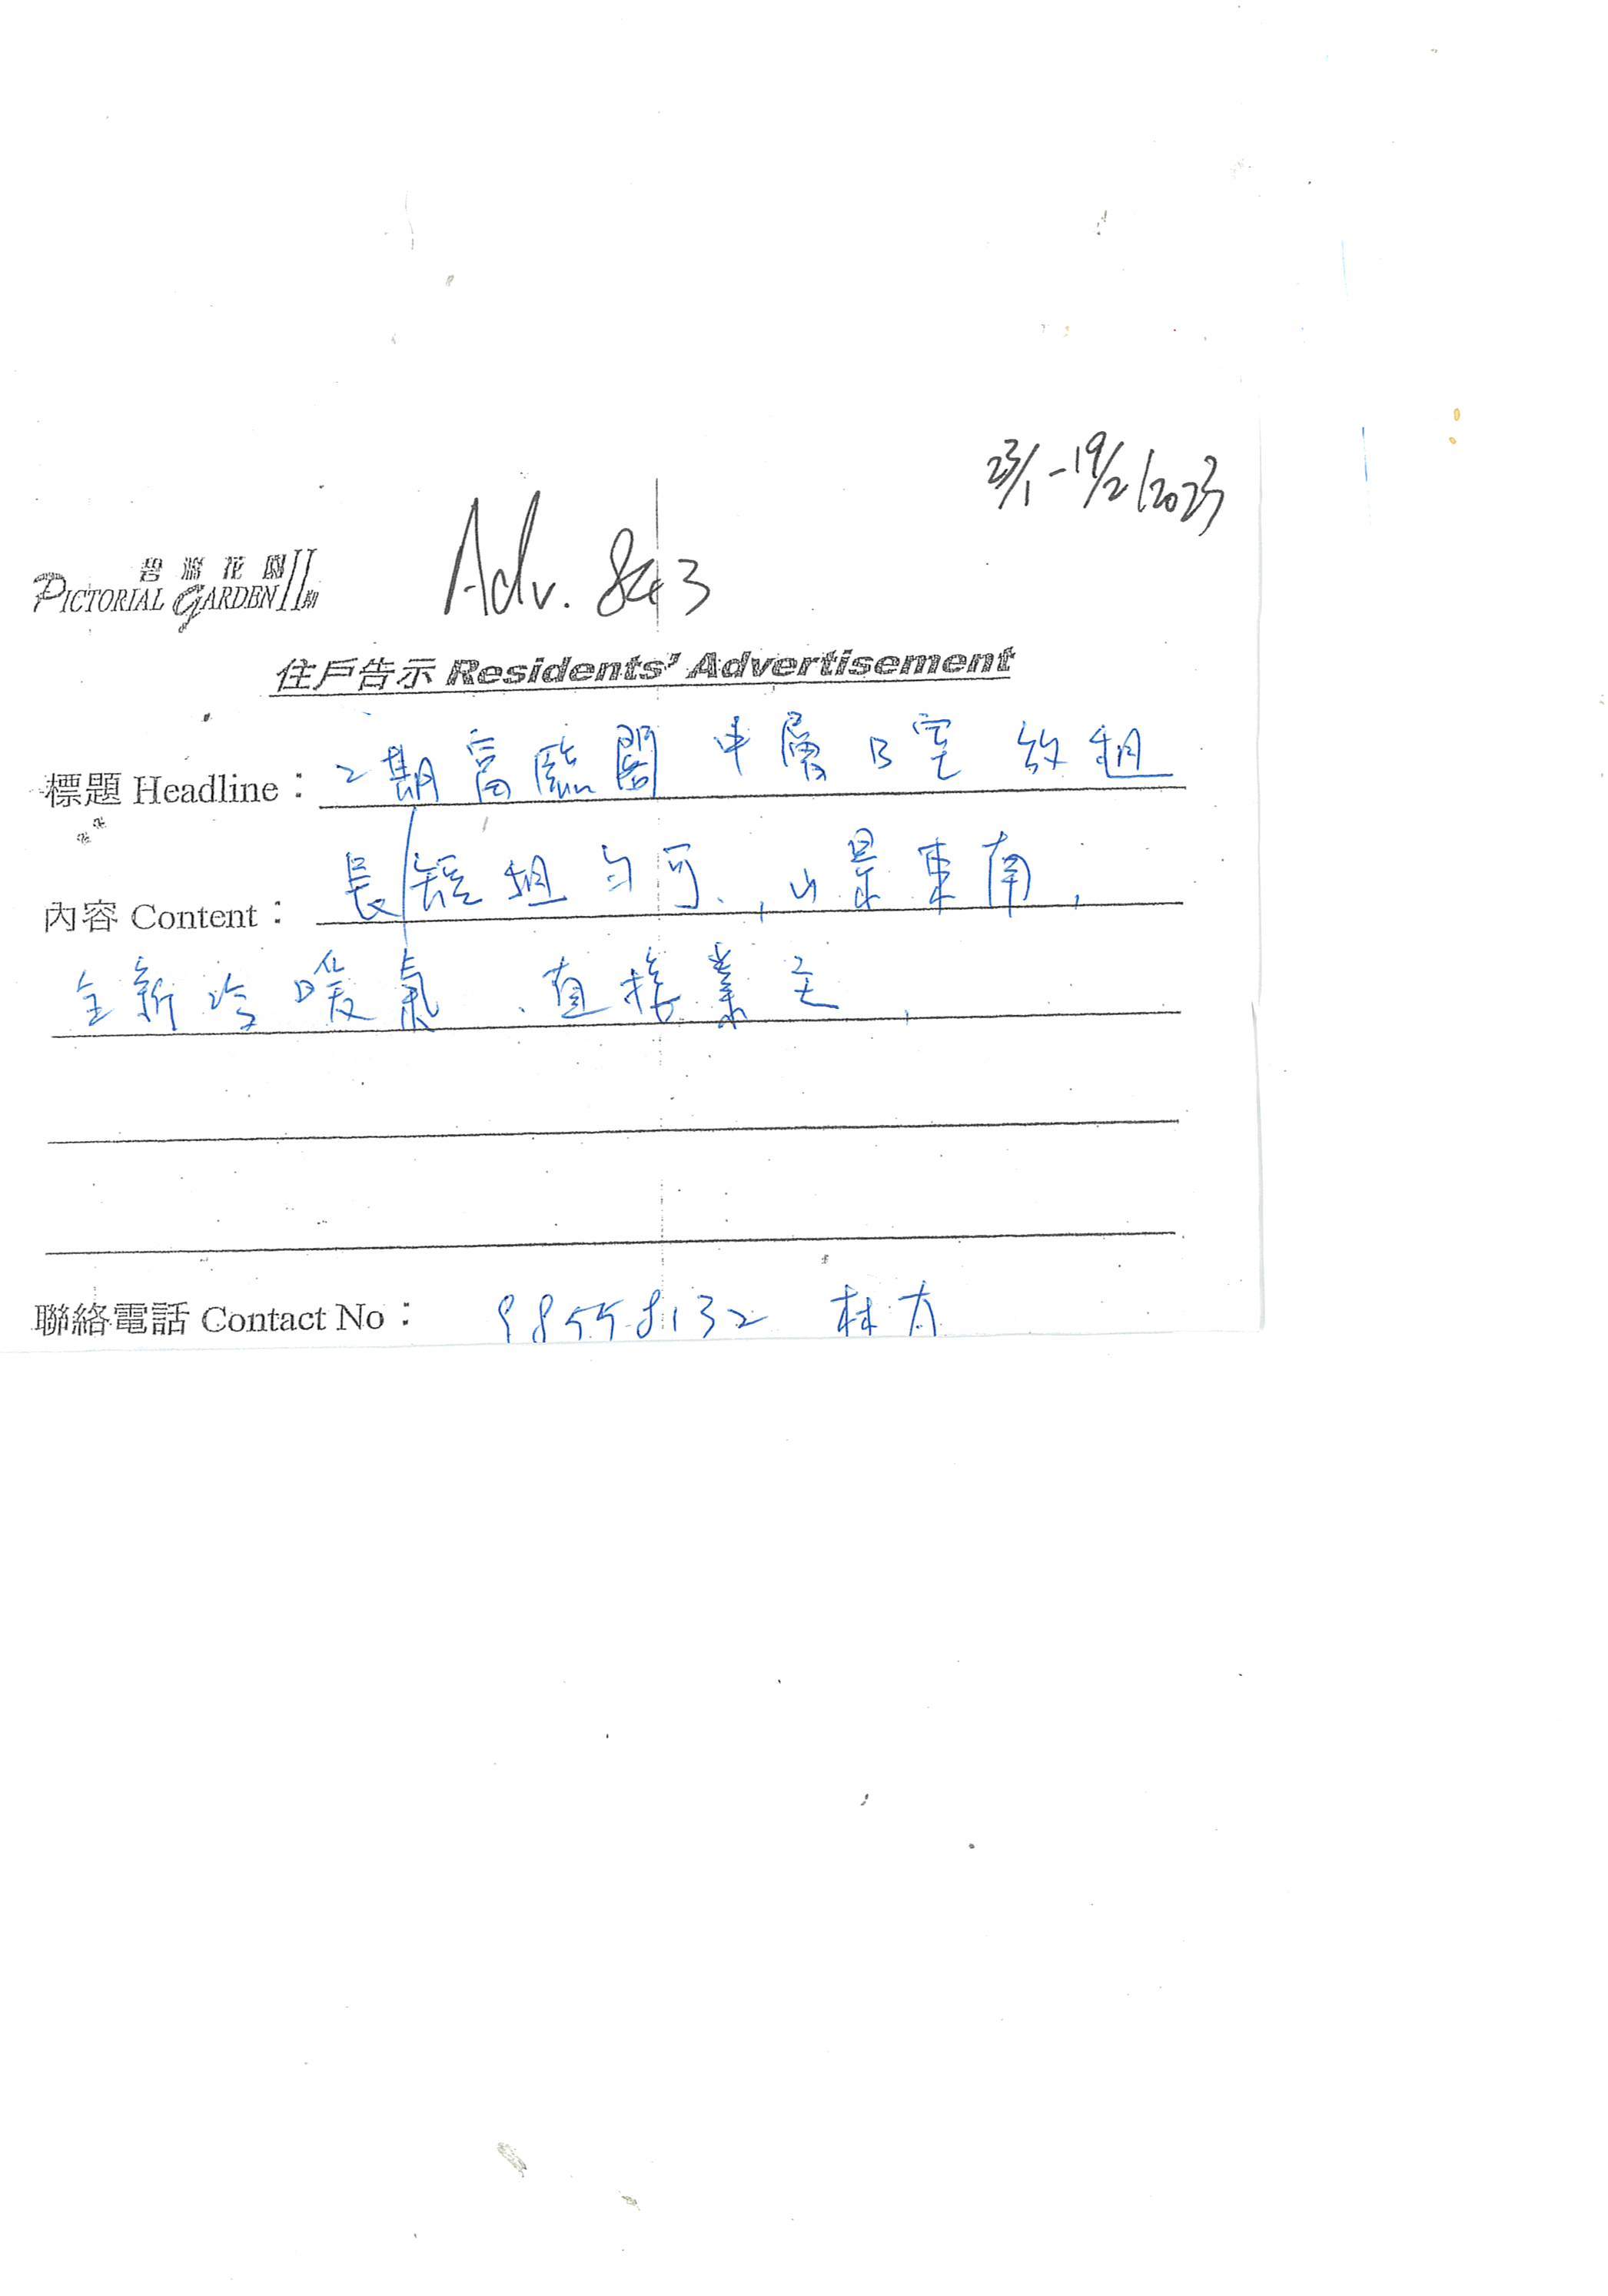 23/1-19/2/2023
Adv. 843
碧濤花園II期
PICTORIAL GARDEN
住戶告示 Residents' Advertisement
標題 Headline： 2期富臨閣 中層B室 放租
內容 Content： 長/短租勻可，山景東南，
全新冷暖氣、直接業主，
聯絡電話 Contact No： 98558132 林太